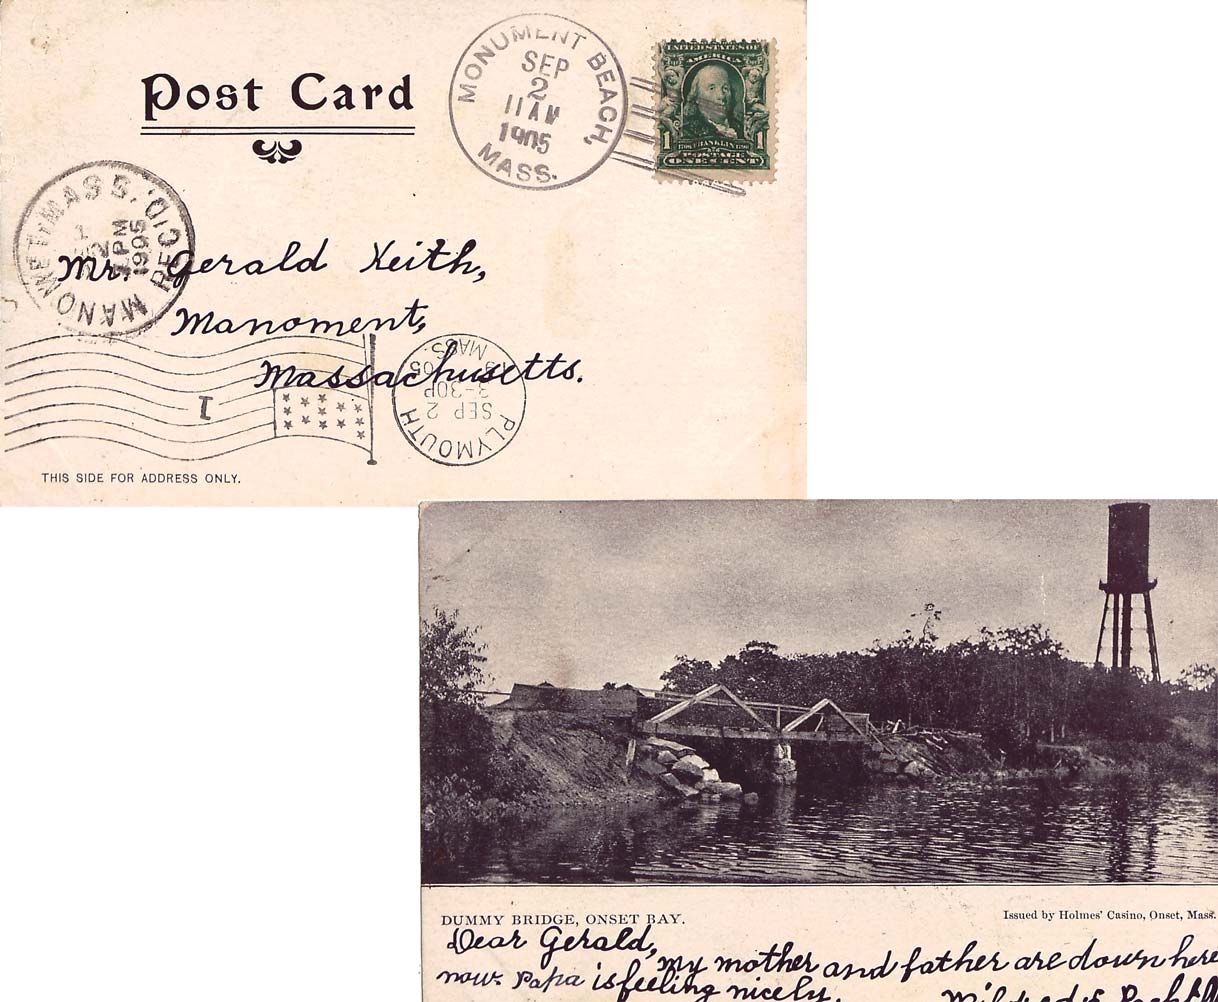 Post Card
MONUMENT BEACH,
SEP
2
11 AM
1905
MASS.
UNITED STATES OF
AMERICA
1 FRANKLIN 1
POSTAGE
ONE CENT
MASS.
REC'D.
2
1 PM
1905
Mr. Gerald Keith,
Manoment,
Massachusetts.
1
PLYMOUTH
SEP 2
3-30P
MASS.
THIS SIDE FOR ADDRESS ONLY.
DUMMY BRIDGE, ONSET BAY.
Issued by Holmes' Casino, Onset, Mass.
Dear Gerald,
my mother and father are down here
now. Papa is feeling nicely.